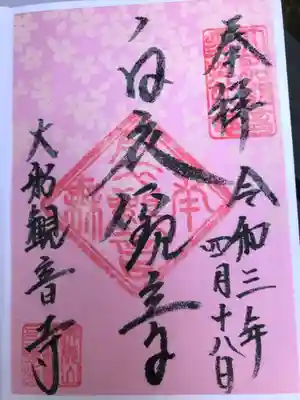 奉拝 令和三年
四月十八日
白衣観音
大船観音寺